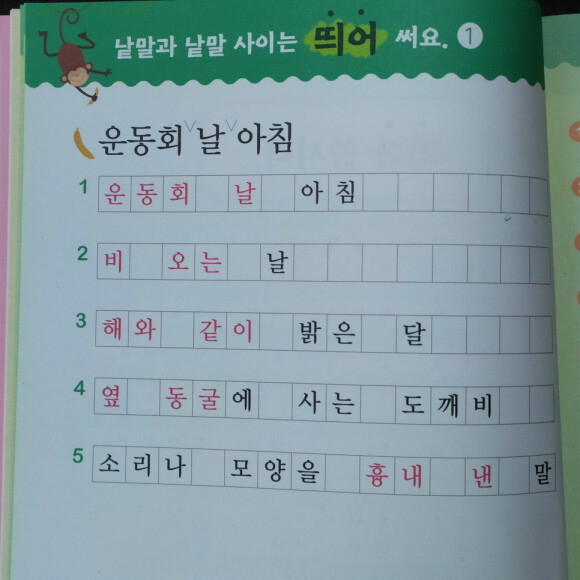 낱말과 낱말 사이는 띄어 써요. 1
운동회∨날∨아침
1 운동회 날 아침
2 비 오는 날
3 해와 같이 밝은 달
4 옆 동굴에 사는 도깨비
5 소리나 모양을 흉내 낸 말